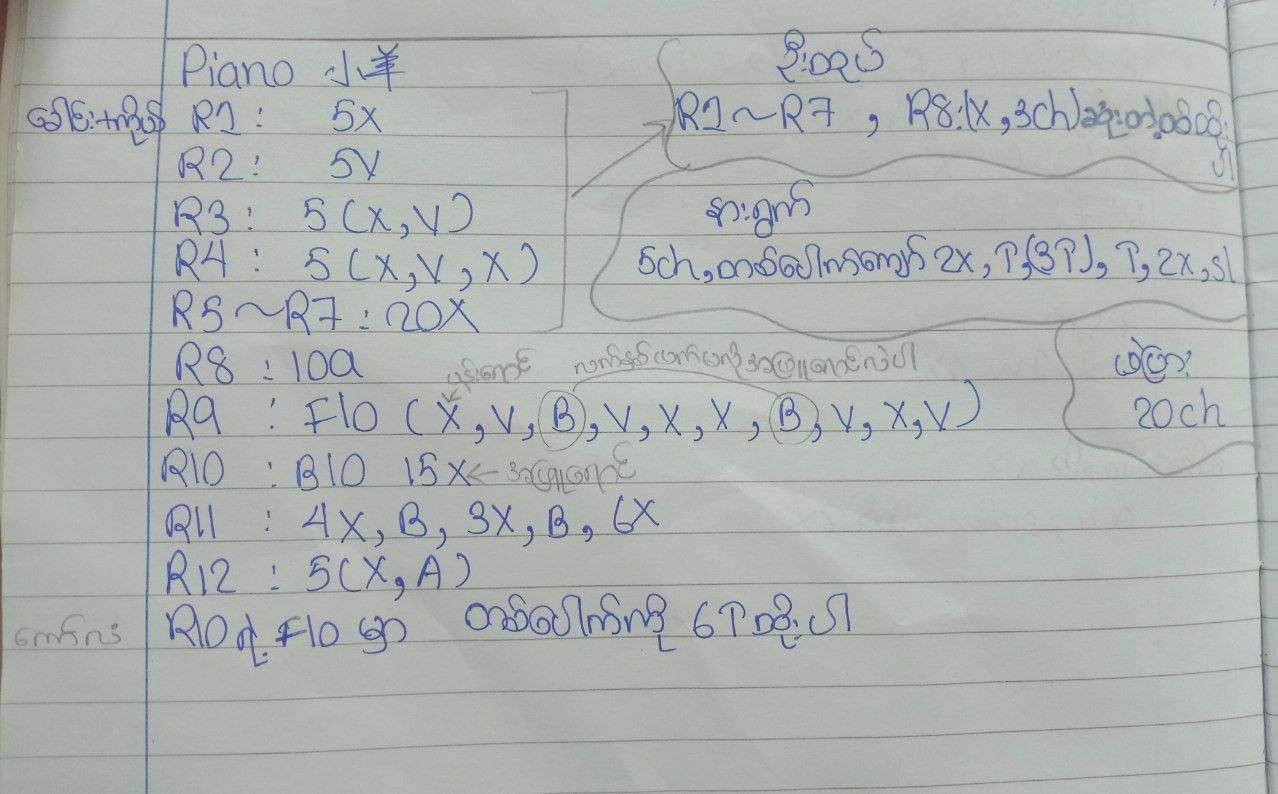 Piano 小羊
ခေါင်း+ကိုယ် R1: 5X
R2: 5V
R3: 5(X,V)
R4: 5(X,V,X)
R5~R7: 20X
R8: 10a
ပန်းရောင် လက်နှစ်ဖက်မလို့အဖြူရောင်လဲပါ
R9: F10 (X,V,B,V,X,X,B,V,X,V)
R10: B10 15X ← အဖြူရောင်
R11: 4X, B, 3X, B, 6X
R12: 5(X,A)
ကော်လံ R10ရဲ့ F10 မှာ တစ်ပေါက်ကို 6T ထိုးပါ
ဦးထုပ်
R1~R7, R8:(X,3ch)ဆုံးတဲ့ထိထိုးပါ
နားရွက်
5ch, တစ်ပေါက်ကျော် 2X, T,(3T), T, 2X, sl
ဖဲပြား
20ch